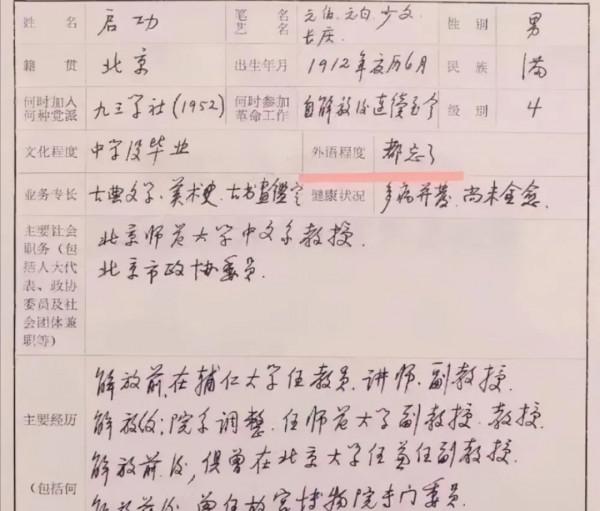 姓名 启功 笔名艺名 元伯、元白、少文、长庆 性别 男
籍贯 北京 出生年月 1912年夏历6月 民族 满
何时加入何种党派 九三学社(1952) 何时参加革命工作 自解放后连续至今 级别 4
文化程度 中学没毕业 外语程度 都忘了
业务专长 古典文学、美术史、古书画鉴定 健康状况 多病并发、尚未全愈.
主要社会
职务(包
括人大代
表、政协
委员及社
会团体兼
职等)
北京师范大学中文系教授.
北京市政协委员.
主要经历
(包括何
解放前,在辅仁大学任教员、讲师、副教授.
解放后;院系调整.任师范大学副教授、教授.
解放前、后,俱曾在北京大学任兼任副教授.
解放前后,曾任故宫博物院专门委员.